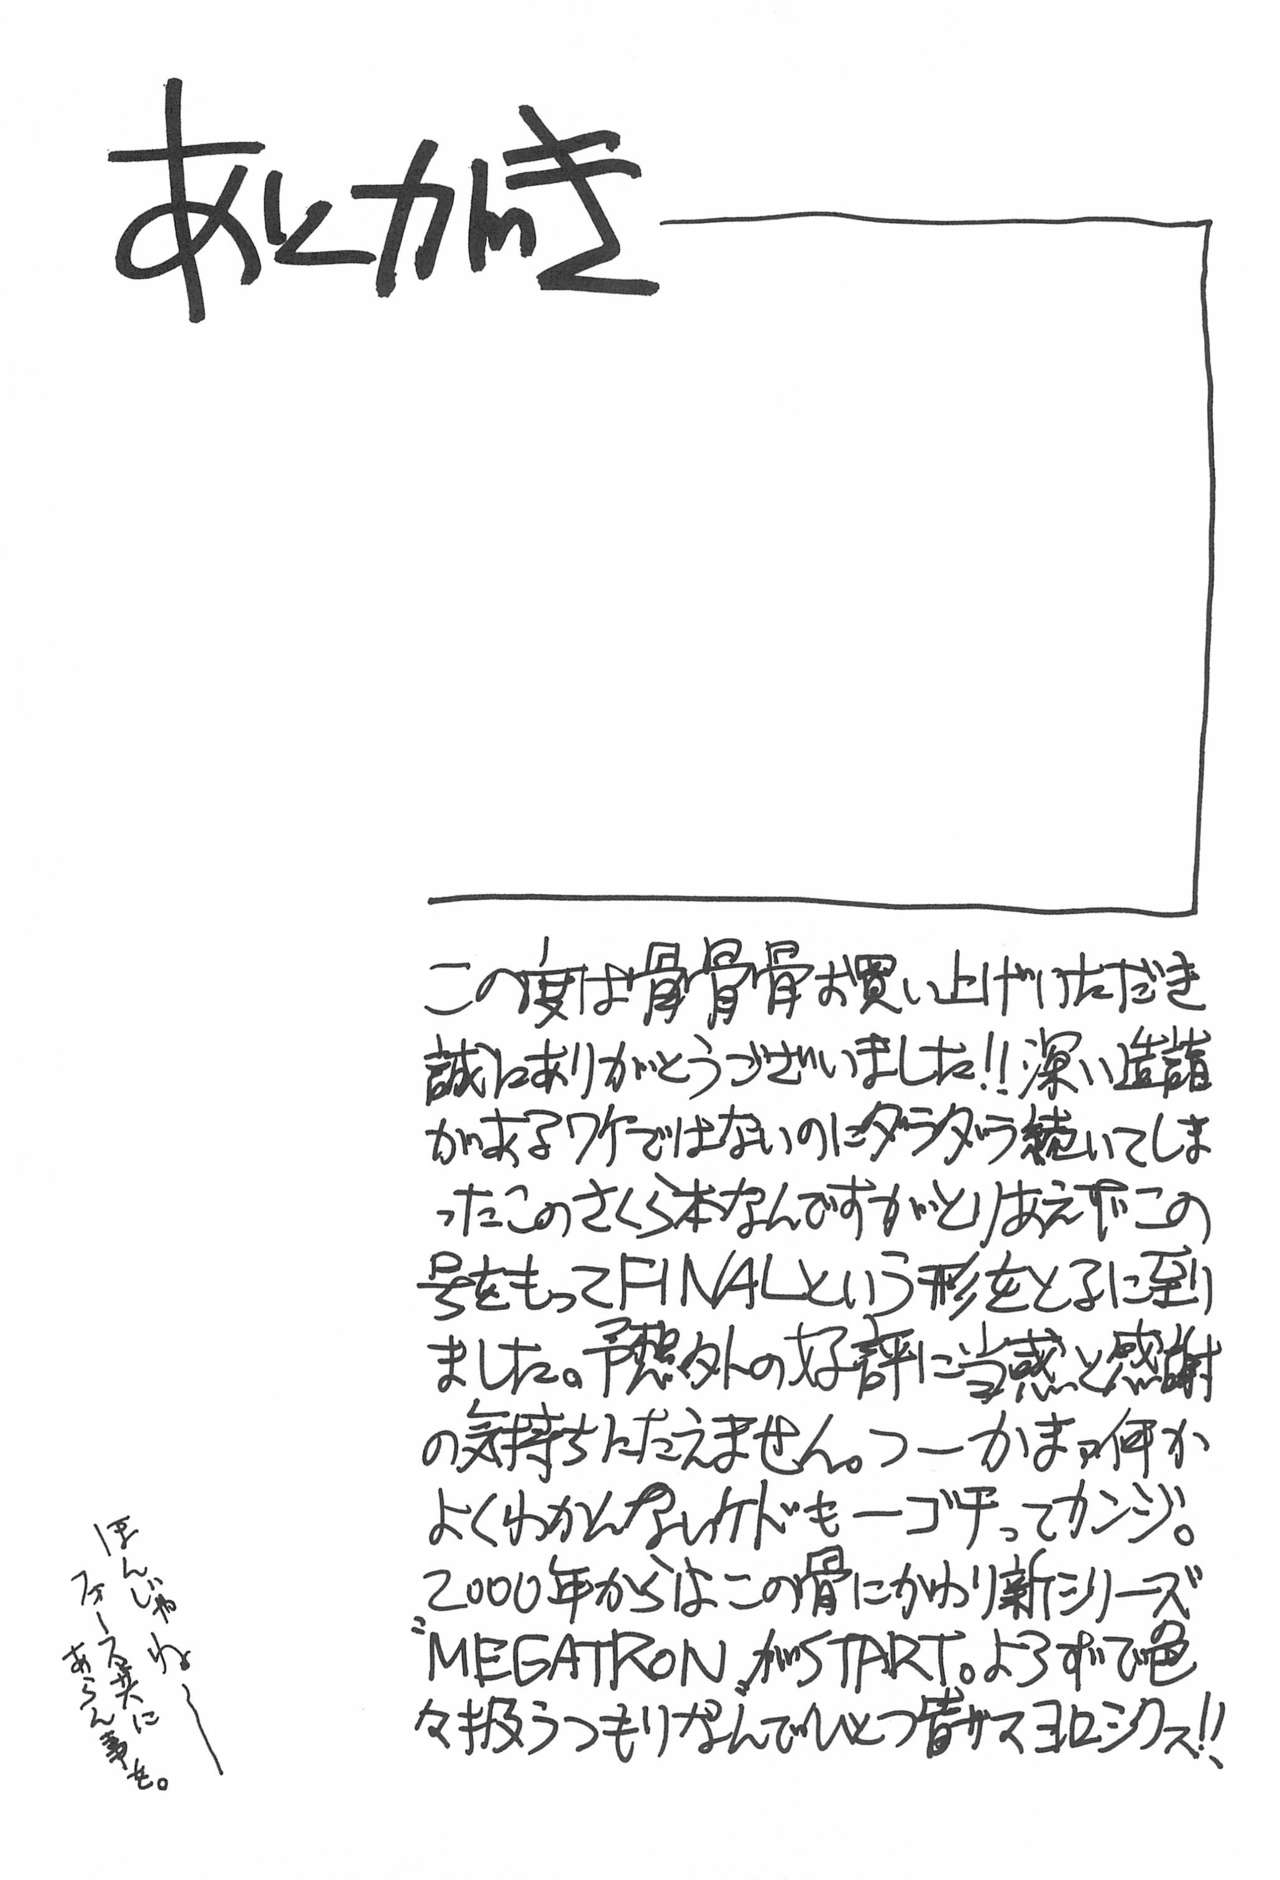 あとがき
この度は骨骨骨お買い上げいただき
誠にありがとうございました!!深い造詣
があるワケではないのにダラダラ続いてしま
ったこのさくら本なんですがとりあえずこの
号をもってFINALという形をとるに至り
ました。予想外の好評に当惑と感謝
の気持ちにたえません。つーかまァ何か
よくわかんないケドも一ゴチってカンジ。
2000年からはこの骨にかわり新シリーズ
"MEGATRON"がSTART。よろずで色
々扱うつもりなんでひとつ皆サマヨロシクス!!
ほんじゃねょ〜
フォース共に
あらん事を。